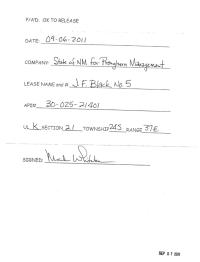 P/A'D. OK TO RELEASE
DATE: 09-06-2011
COMPANY: State of NM for Pronghorn Management
LEASE NAME and #: J.F. Black No. 5
API#: 30-025-21401
UL K SECTION 21 TOWNSHIP 24S RANGE 37E
SIGNED: Mark Whitaker
SEP 07 2011